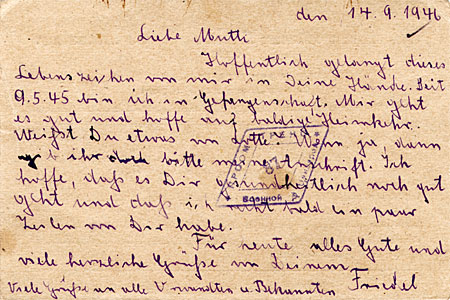 den 14.9.1946
Liebe Mutti
Hoffentlich gelangt dieses
Lebenszeichen von mir in Deine Hände. Seit
9.5.45 bin ich in Gefangenschaft. Mir geht
es gut und hoffe auf baldige Heimkehr.
Weißt Du etwas von Lotte. Wenn ja, dann
gib ihr doch bitte meine Anschrift. Ich
hoffe, daß es Dir gesundheitlich noch gut
geht und daß ich recht bald ein paar
Zeilen von Dir habe.
Für heute alles Gute und
viele herzliche Grüße von Deinem
Friedel
Viele Grüße an alle Verwandten u Bekannten
ПРОСМОТРЕНО
87
ВОЕННОЙ